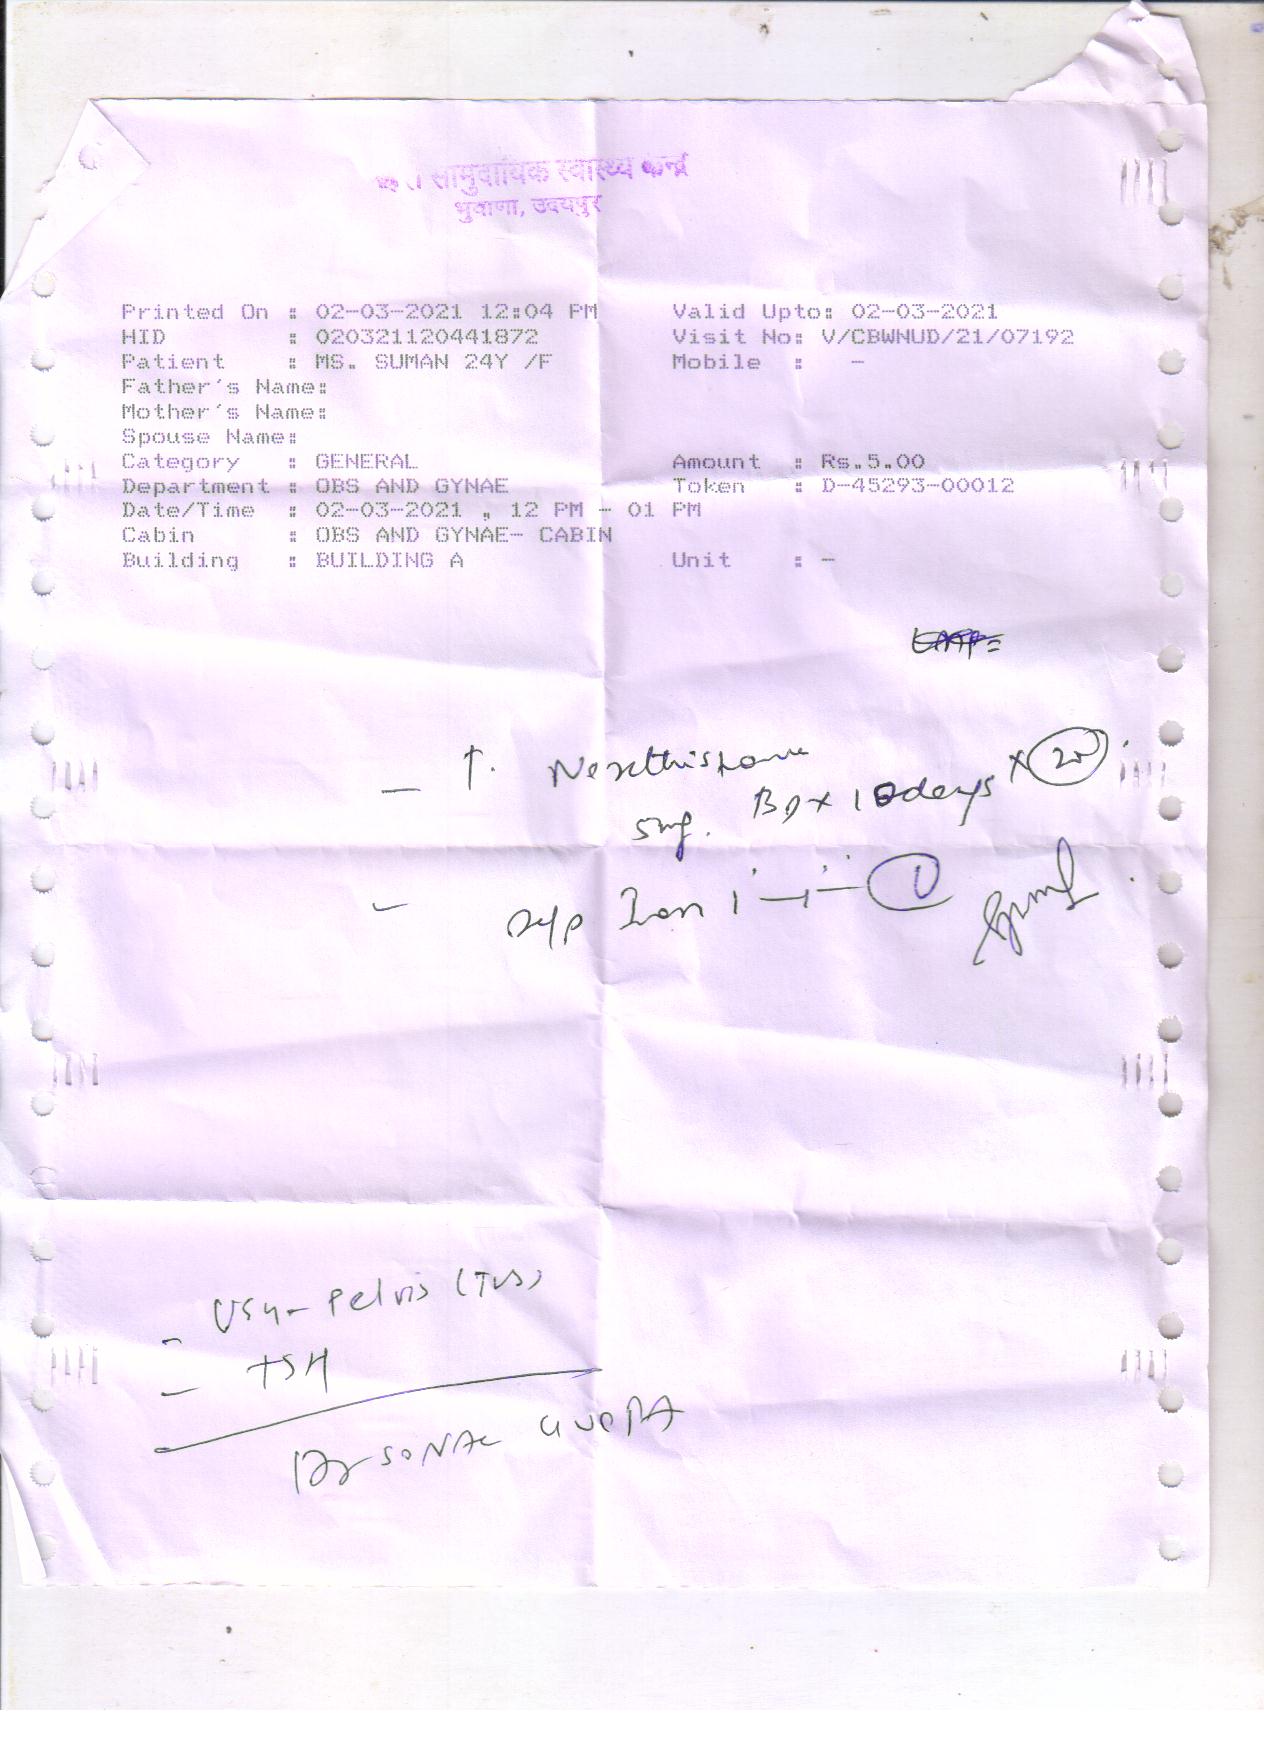 सामुदायिक स्वास्थ्य केन्द्र
भुवाणा, उदयपुर
Printed On : 02-03-2021 12:04 PM Valid Upto: 02-03-2021
HID : 020321120441872 Visit No: V/CBWNUD/21/07192
Patient : MS. SUMAN 24Y /F Mobile : -
Father's Name:
Mother's Name:
Spouse Name:
Category : GENERAL Amount : Rs.5.00
Department : OBS AND GYNAE Token : D-45293-00012
Date/Time : 02-03-2021 , 12 PM - 01 PM
Cabin : OBS AND GYNAE- CABIN
Building : BUILDING A Unit : -
- T.
5mg. BD x 10days x 20
- syp Iron 1 - 1 - 1
- USG - Pelvis (TVS)
- TSH
Dr SONAL GUPTA